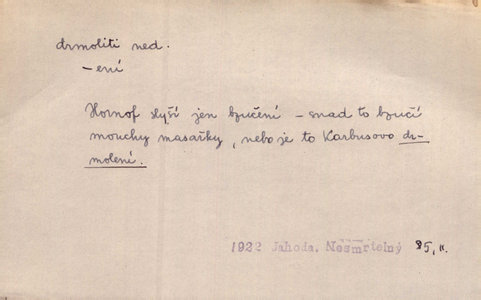 drmoliti ned.
-ení
Hornof slyší jen bzučení – snad to bzučí
mouchy masařky, nebo je to Karbusovo dr-
molení.
1922 Jahoda, Nesmrtelný 35, II.